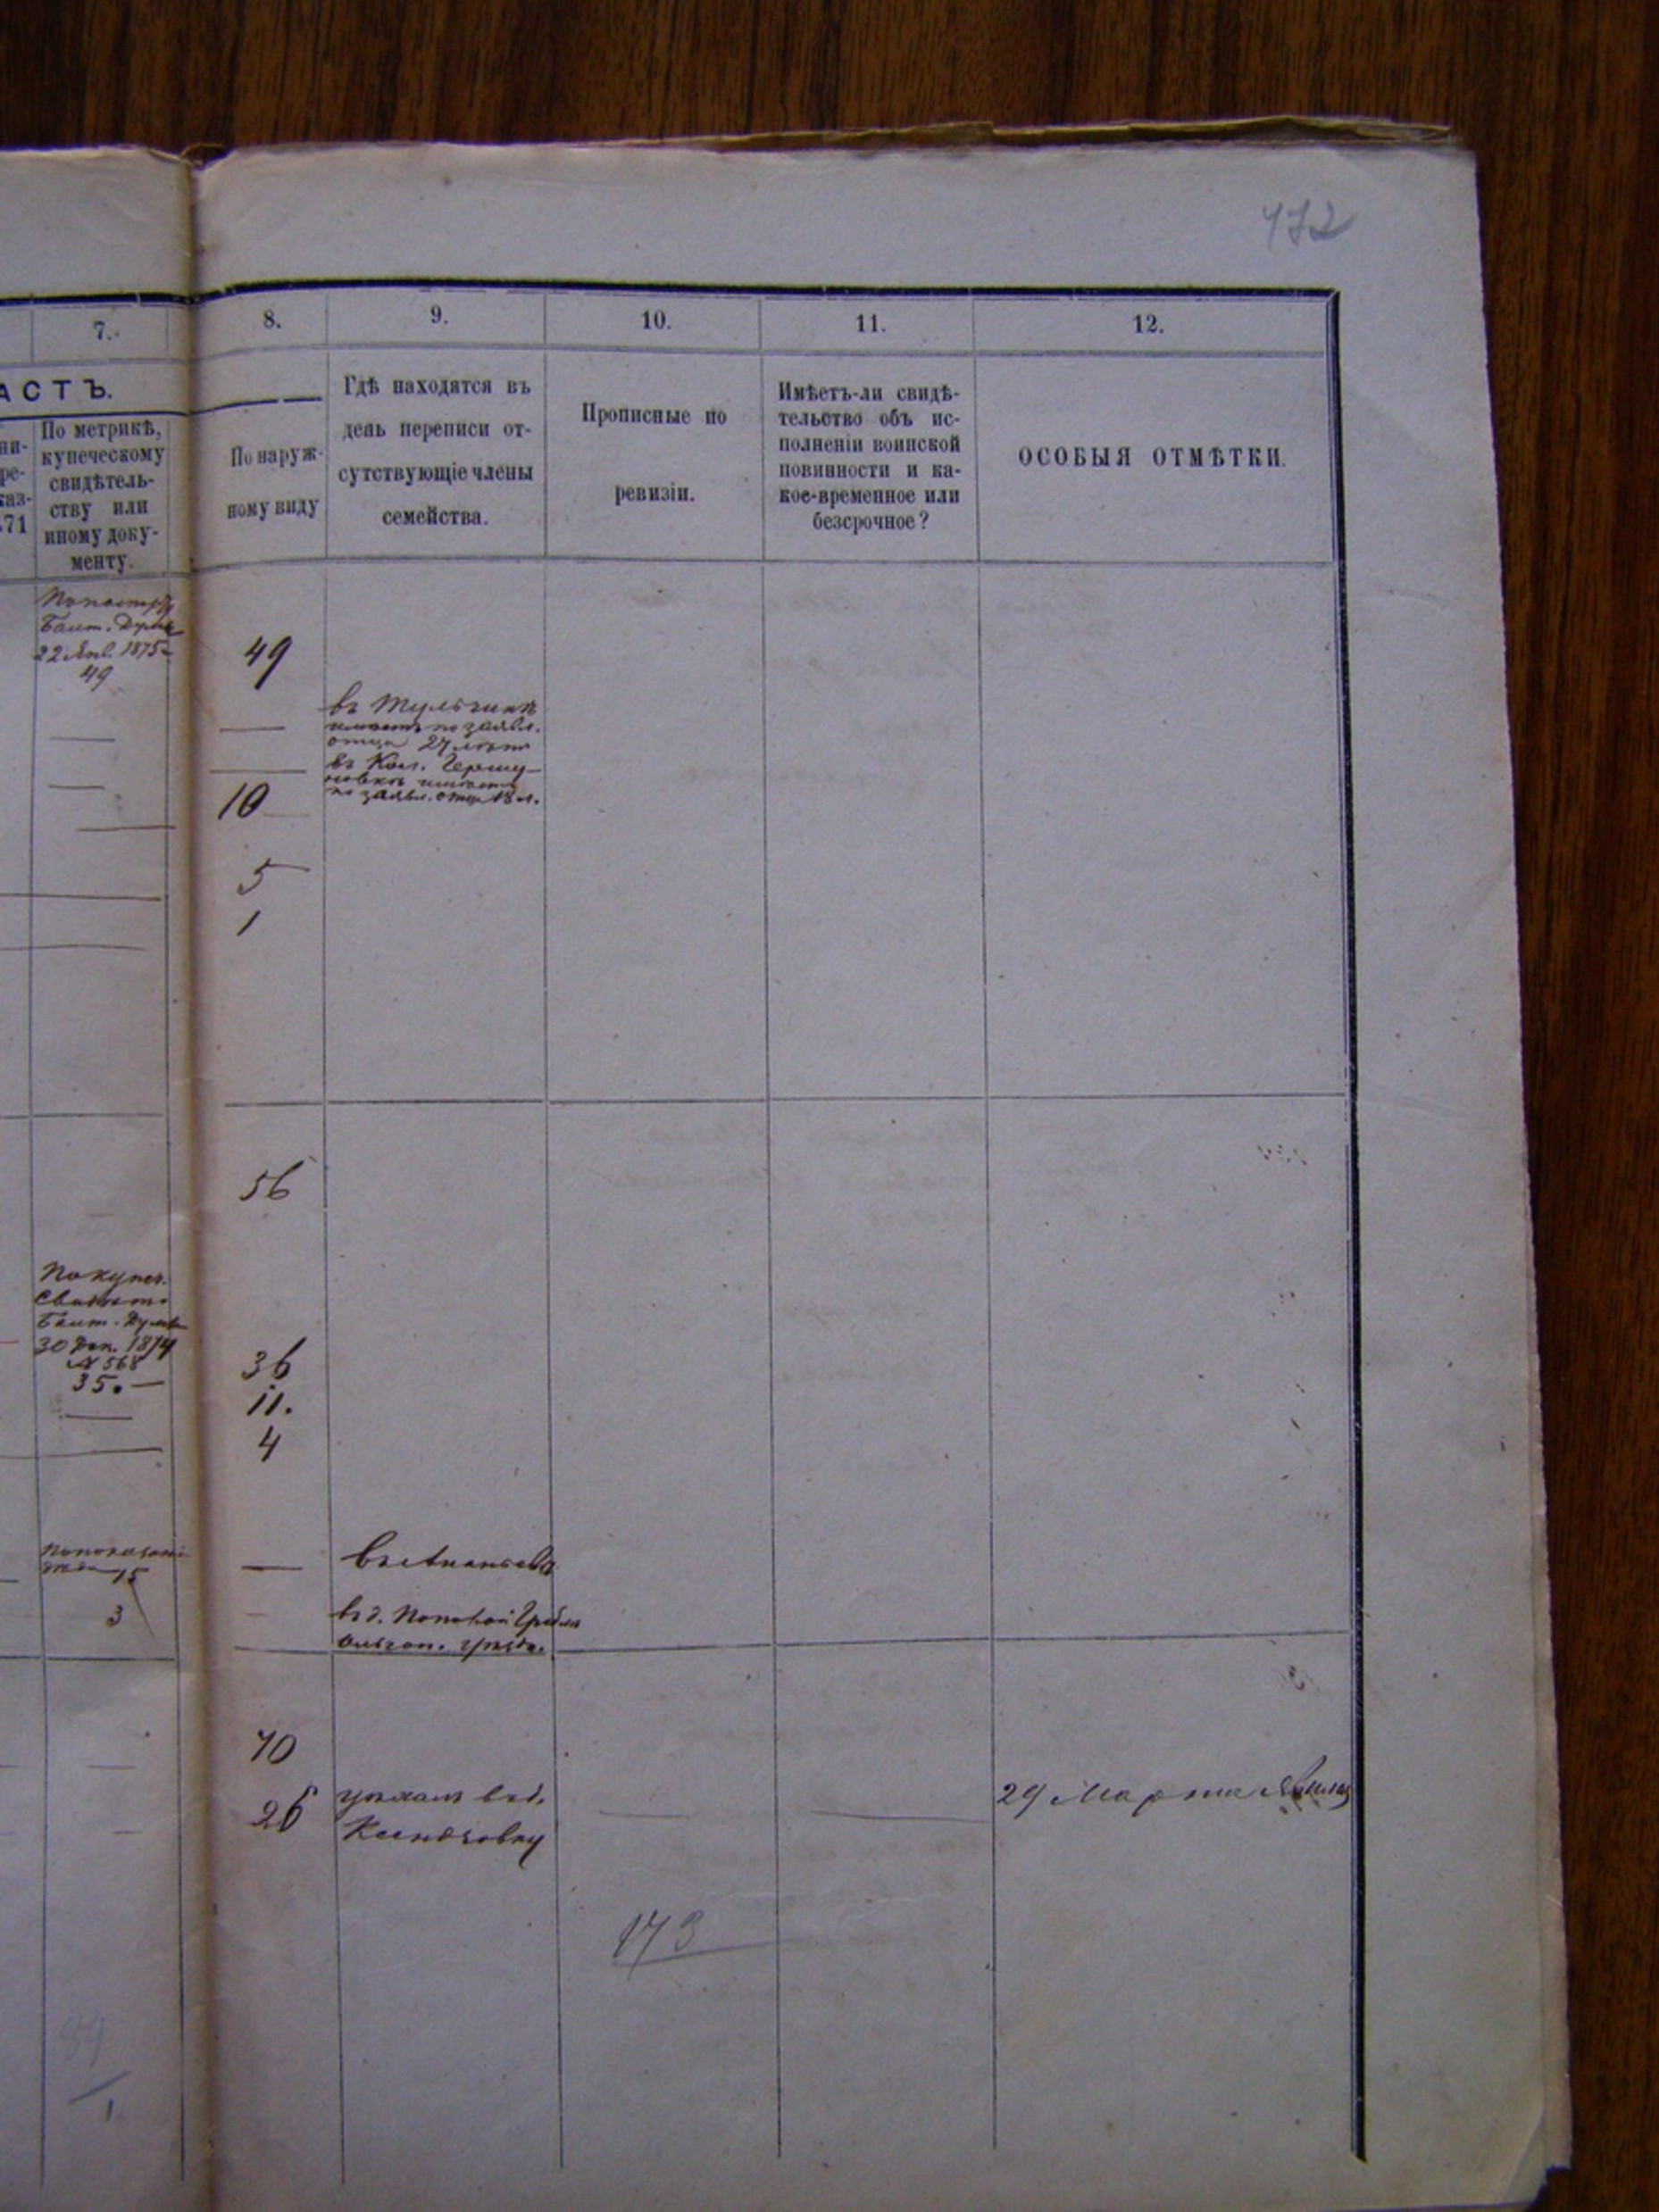 472
7.
8.
9.
10.
11.
12.
АСТЪ.
По метрикѣ,
купеческому
свидѣтель-
ству или
иному доку-
менту.
ни-
ре-
каз-
.71
По наруж-
ному виду
Гдѣ находятся въ
день переписи от-
сутствующіе члены
семейства.
Прописные по
ревизіи.
Имѣетъ-ли свидѣ-
тельство объ ис-
полненіи воинской
повинности и ка-
кое-временное или
безсрочное?
ОСОБЫЯ ОТМѢТКИ.
Балт. Думы
22 Янв. 1875 г
49
49
въ Тульчинѣ
имѣетъ по заявл.
отца 27 лѣтъ
въ Кол. Гершу-
новкѣ имѣетъ
по заявл. отца 13 л.
10
5
1
56
По купеч.
Свидѣт.
Балт. Думы
30 Дек. 1874
№ 568
35.
36
11.
4
15
въ Ананьевѣ
3
въ д. Поповой Греблѣ
Ольгоп. уѣзда.
70
26
уѣхалъ въ д.
Ксендзовку
29 Марта явился
173
89
1